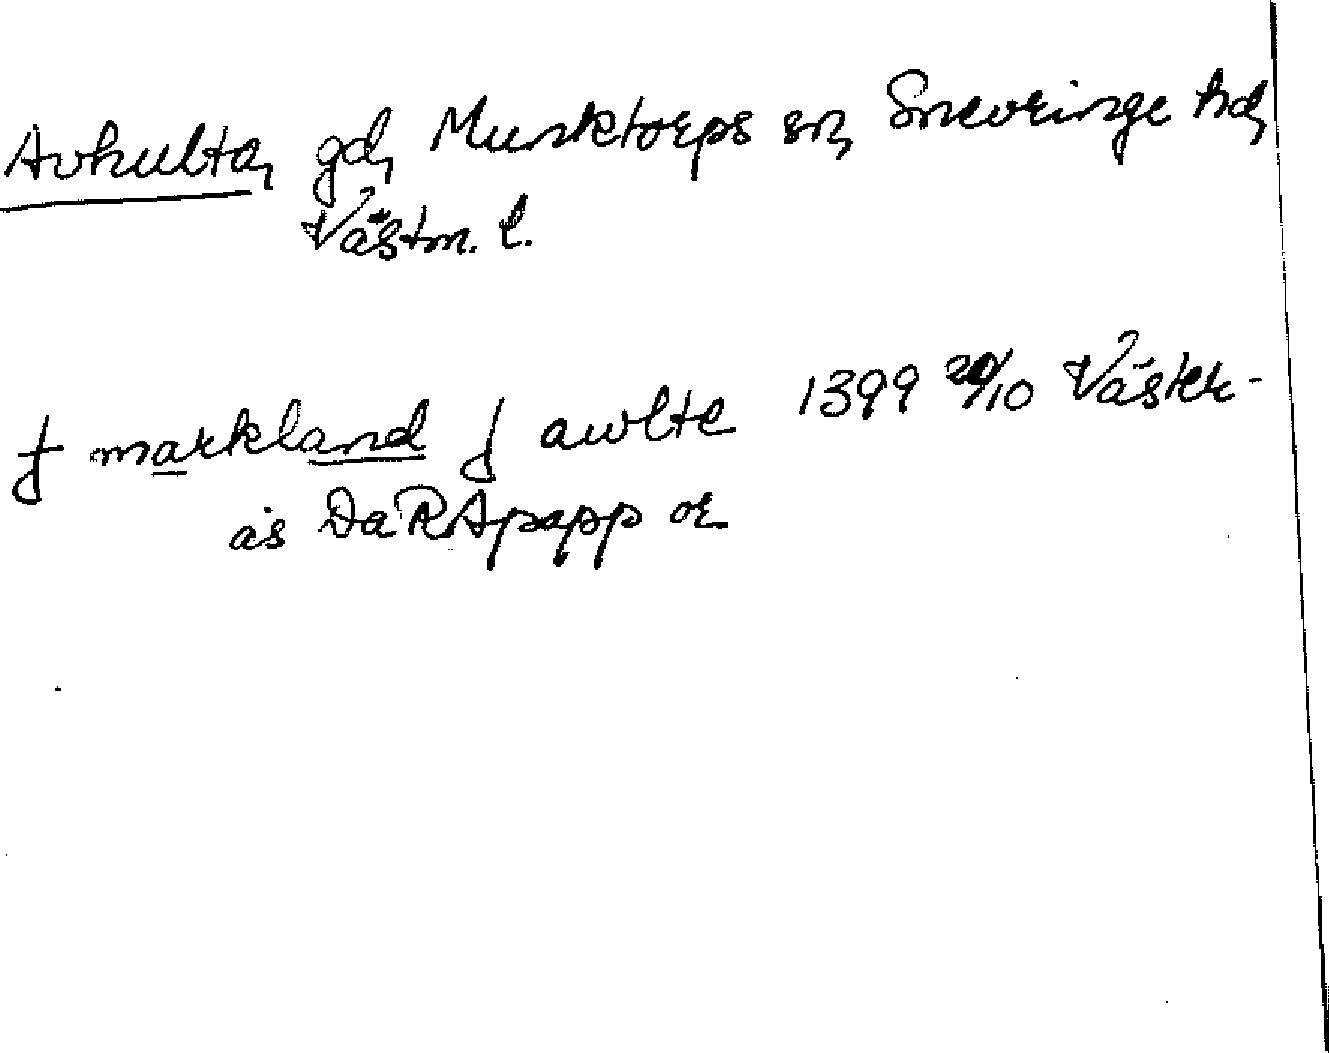 Avhulta, gd, Munktorps sn, Snevringe hd,
Västm. l.
J markland J awlte 1399 20/10 Väster-
ås DaRApapp or